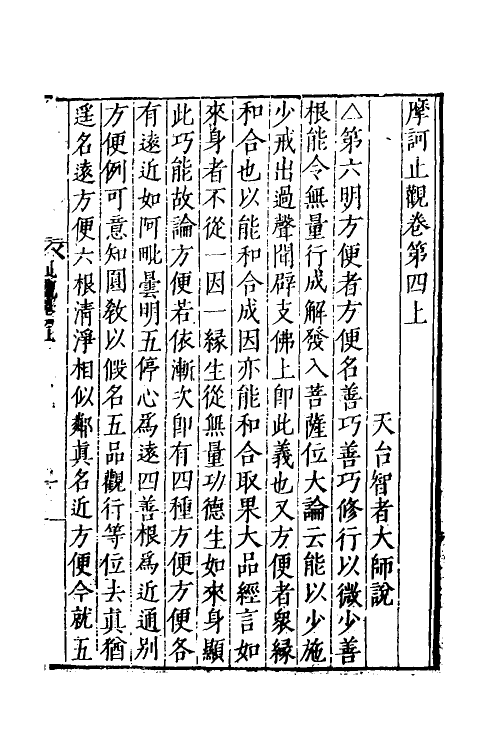 摩訶止觀卷第四上
天台智者大師說
△第六明方便者方便名善巧善巧修行以微少善
根能令無量行成解發入菩薩位大論云能以少施
少戒出過聲聞辟支佛上卽此義也又方便者衆緣
和合也以能和合成因亦能和合取果大品經言如
來身者不從一因一緣生從無量功德生如來身顯
此巧能故論方便若依漸次卽有四種方便方便各
有遠近如阿毗曇明五停心爲遠四善根爲近通別
方便例可意知圓敎以假名五品觀行等位去眞猶
遙名遠方便六根清淨相似鄰眞名近方便今就五